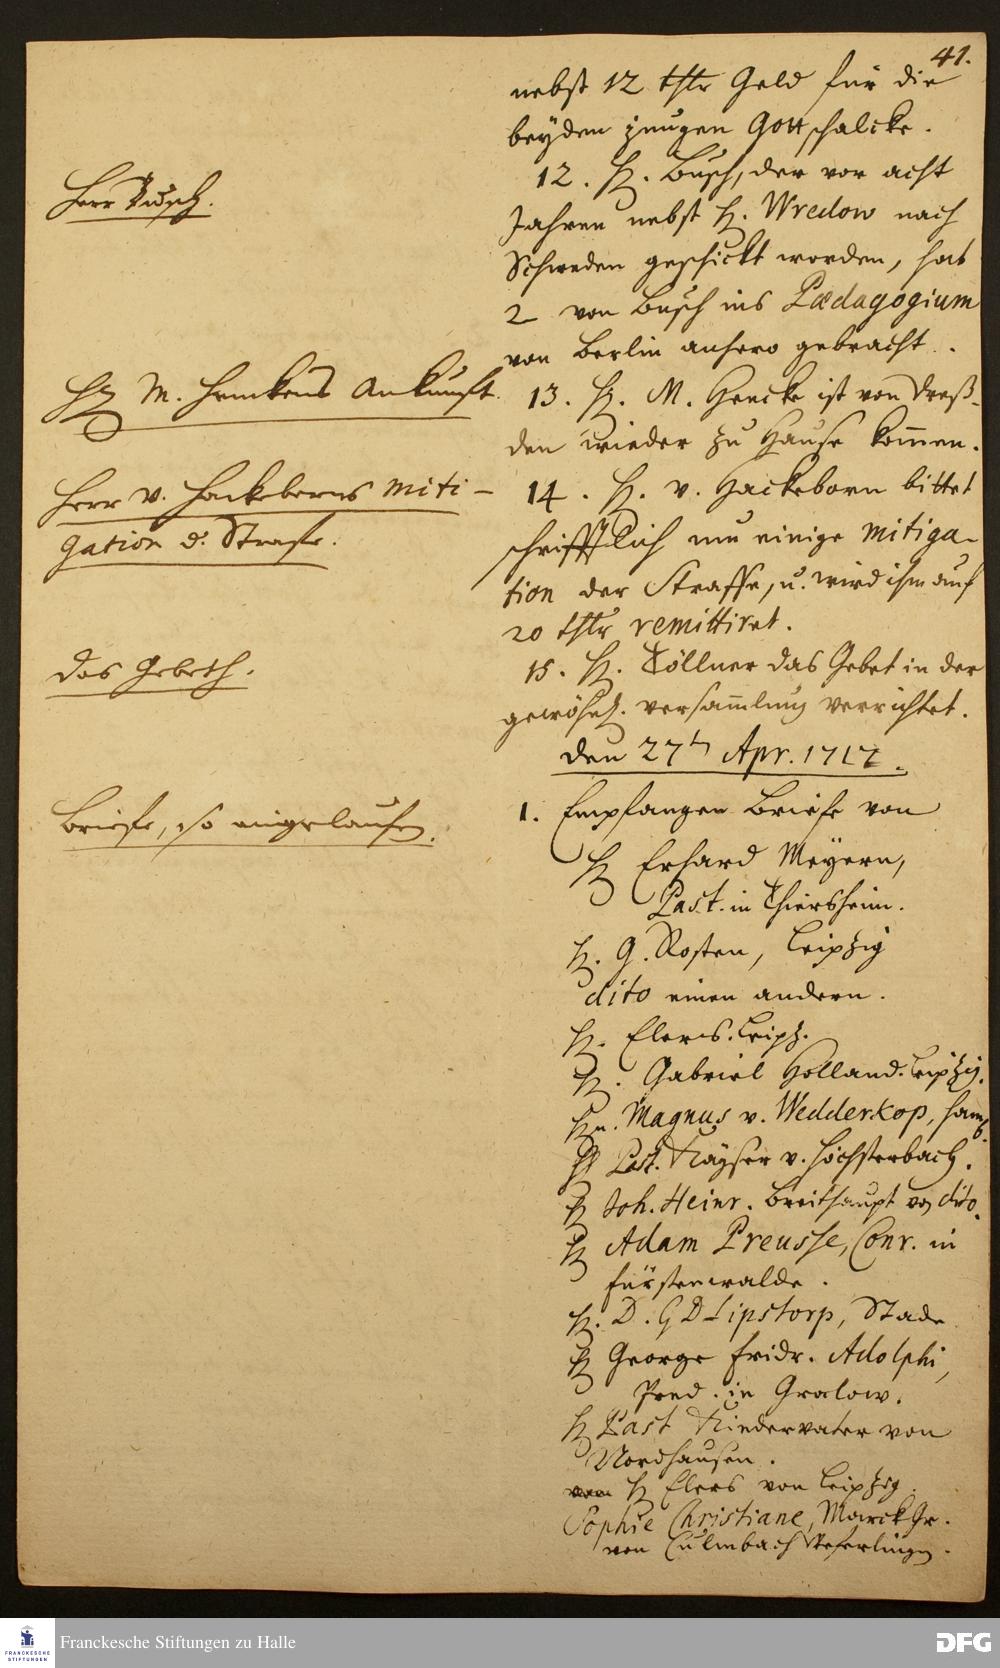 41.
nebst 12 thlr Geld für die
beyden jungen Gottschalcke.
Herr Busch.
12. H. Busch, der vor acht
Jahren nebst H. Wredow nach
Schweden geschickt worden, hat
2 von Busch ins Pædagogium
von Berlin anhero gebracht.
H M. Henckens Ankunfft.
13. H. M. Hencke ist von Dreß-
den wieder zu Hause kom̄en.
Herr v. Hackeborns miti-
gation d. Strafe.
14. H. v. Hackeborn bittet
schrifftlich um einige mitiga-
tion der Straffe, u. wird ihm auf
20 thlr remittiret.
das Gebeth.
15. H. Töllner das Gebet in der
gewöhnl. versam̄lung verrichtet.
den 27ten Apr. 1717.
Briefe, so eingelauffen.
1. Empfangen Briefe von
H Erhard Meyern,
Past. in Thiersheim.
H. G. Rosten, Leipzig
dito einen andern.
H. Elers. Leipz.
H. Gabriel Holland. Leipzig.
Hn. Magnus v. Wedderkop, Hamb.
H Past. Kayser v. Höchsterbach.
H Joh. Heinr. Breithaupt von dito.
H Adam Preusse, Conr. in
Fürstenwalde.
H. D. G D Lipstorp, Stade
H George Fridr. Adolphi,
Pred. in Gralow.
H Past Kindervater von
Nordhausen.
H Elers von Leipzig.
Sophie Christiane, Marckgr.
von Culmbach Weferlingen.
Franckesche Stiftungen zu Halle
FRANCKESCHE
STIFTUNGEN
DFG